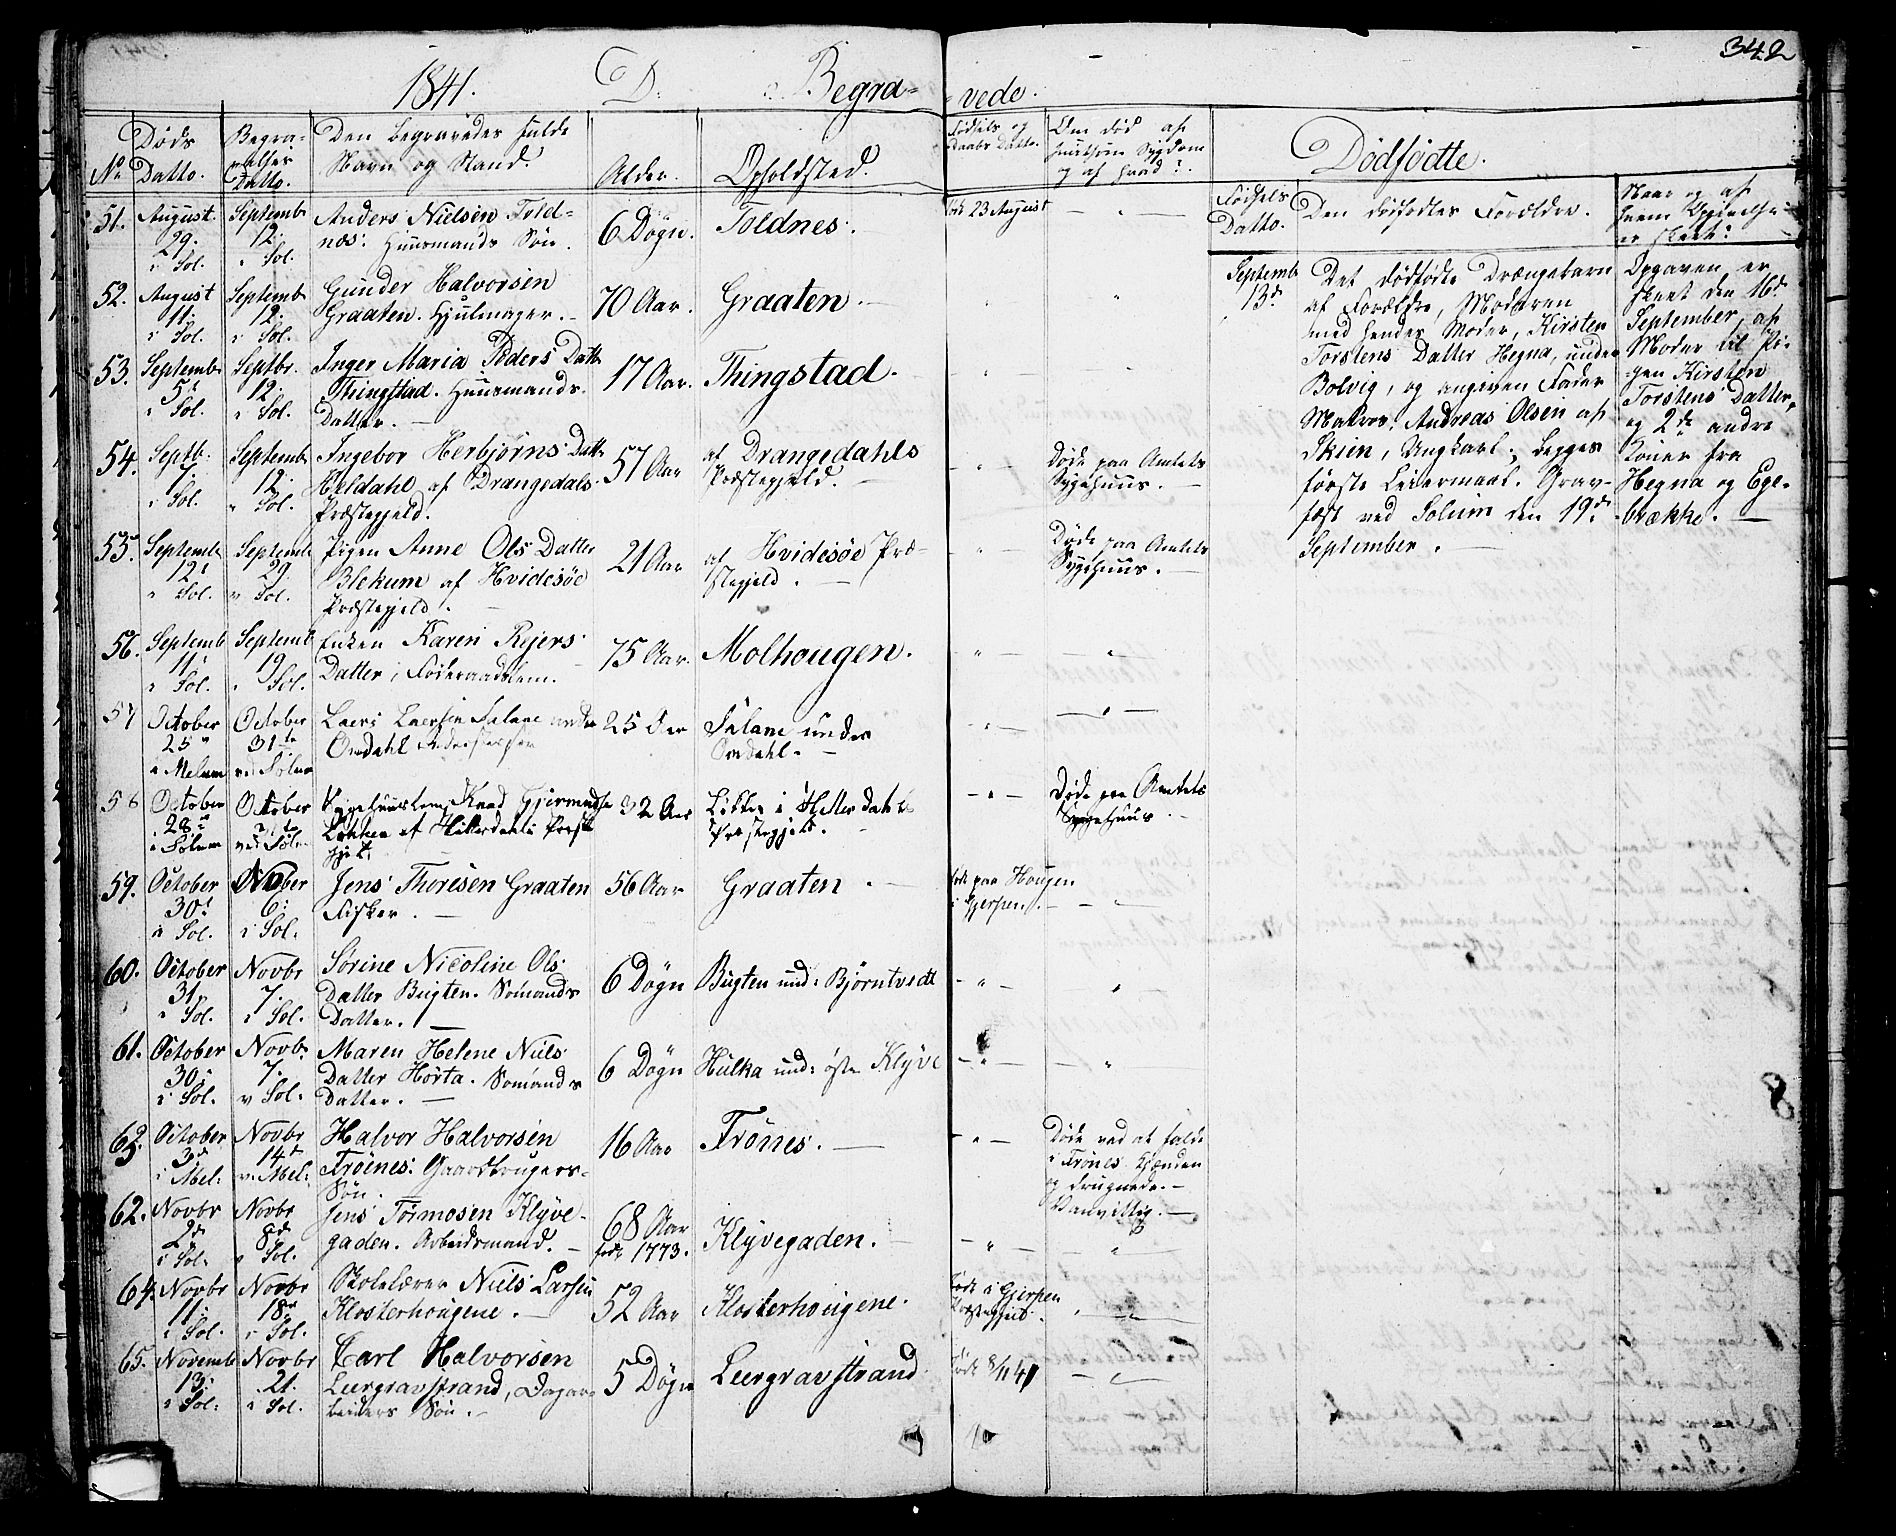 342
1841. D. Begra-vede.
Døds Datto. Begra-velses Datto. Den begravedes fulde Navn og Stand. Alder. Opholdsted. Fødsels og Daabs Datto. Om død af smitsom Sygdom og af hvad?
No
Dødfødte.
Fødsels Datto. Den dødfødtes Forældre. Naar og af hvem Opgivelse er skeet?
51. August 29. i Sol. Septemb 12. i Sol. Anders Nielsen Told-
næs: Huusmands Søn. 6 Døgn. Toldnes. født 23 August
52. August 11. i Sol. Septemb 12. i Sol. Gunder Halvorsen
Graaten. Hjulmager. 70 Aar. Graaten.
53. Septemb 5. i Sol. Septbr. 12. i Sol. Inger Maria Peders Datter
Thingstad. Huusmands
Datter. 17 Aar. Thingstad.
54. Septb. 7. i Sol. Septemb 12. v Sol. Ingebor Herbjørns Datter
Heldahl af Drangedals
Præstegjeld. 57 Aar af Drangedahls
Præstegjeld. Døde paa Amtets
Sygehuus.
55. Septemb 12. i Sol. Septemb 29. v Sol. Pigen Anne Ols Datter
Blekum af Hvidesöe
Præstegjeld. 21 Aar af Hvidesöe Præ-
stegjeld. Døde paa Amtets
Sygehuus.
56. Septemb 11. i Sol. Septemb 19. i Sol. Enken Karen Rejers
Datter, Føderaadslem. 75 Aar. Molhougen.
57 October 25 i Melum October 31te ved Solum Laers Laersen Falane under
Omdahl 25 Aar Falane under
Omdahl.
58 October 28 i Solum October ved Solum Sygehuuslem Knud Gjermundsen
Løkken af Hitterdahls Præste
gjeld. 32 Aar Løkken i Hitterdahls
Præstegjeld. Døde paa Amtets
Sygehuus.
59. October 30. i Sol. Novber 6. i Sol. Jens Thoresen Graaten
Fisker. 56 Aar Graaten. født paa Hougen
i Gjerpen.
60. October 31. i Sol. Novbr 7. i Sol. Sørine Nicoline Ols
Datter Bugten. Sömands
Datter. 6 Døgn Bugten und: Bjørntvedt
61. October 30. i Sol. Novbr 7. v Sol. Maren Helene Niels
Datter Hørta. Sömands
Datter. 6 Døgn Hulka und: øst Klyve
63. October 3d i Mel: Novbr 14d v. Mel: Halvor Halvorsen
Frönes: Gaardbrugers
Søn. 16 Aar Frönes. Døde ved at falde
i Frönes Kjænden
og drugnede.
Vanvittig.
62. Novbr 2d i Sol. Novbr 8d v Sol. Jens Tormosen Klyve-
gaden. Arbeidsmand. 68 Aar
født 1773. Klyvegaden.
64. Novbr 11. i Sol. Novbr 18. i Sol. Skolelærer Niels Larsen
Klosterhougene. 52 Aar Klosterhougene. Født i Gjerpen
Præstegjeld.
65. Novemb 13. i Sol. Novbr 21. i Sol. Carl Halvorsen
Leergravstrand, Dagar-
beiders Søn. 5 Døgn Leergravstrand Født 8/11 41
Septemb 13d Det dødfødte Drængebarn
af Forældre, Moderen
med hendes Moder, Kirsten
Torstens Datter Hegna, under
Bolvig, og angiven Fader
Matros Andreas Olsen af
Skien, Ungkarl; begges
første Leiermaal. Grav-
fæst ved Solum den 19de
September.
Opgaven er
skeet den 16d
September, af
Moder til Pi-
gen Kirsten
Torstens Datter,
og 2de andre
Koner fra
Hegna og Ege-
brække.